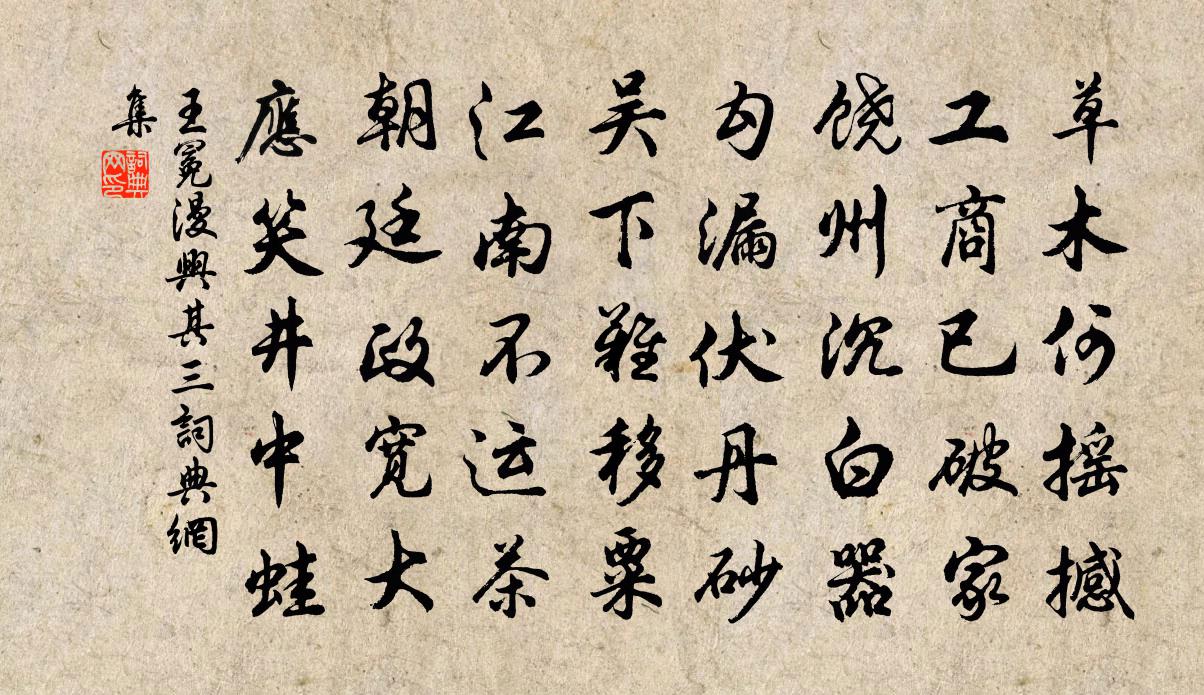 草木何摇撼
工商已破家
饶州沉白器
勾漏伏丹砂
吴下难移粟
江南不运茶
朝廷政宽大
應笑井中蛙
王冕漫興其三詞典網
集
詞典
网印